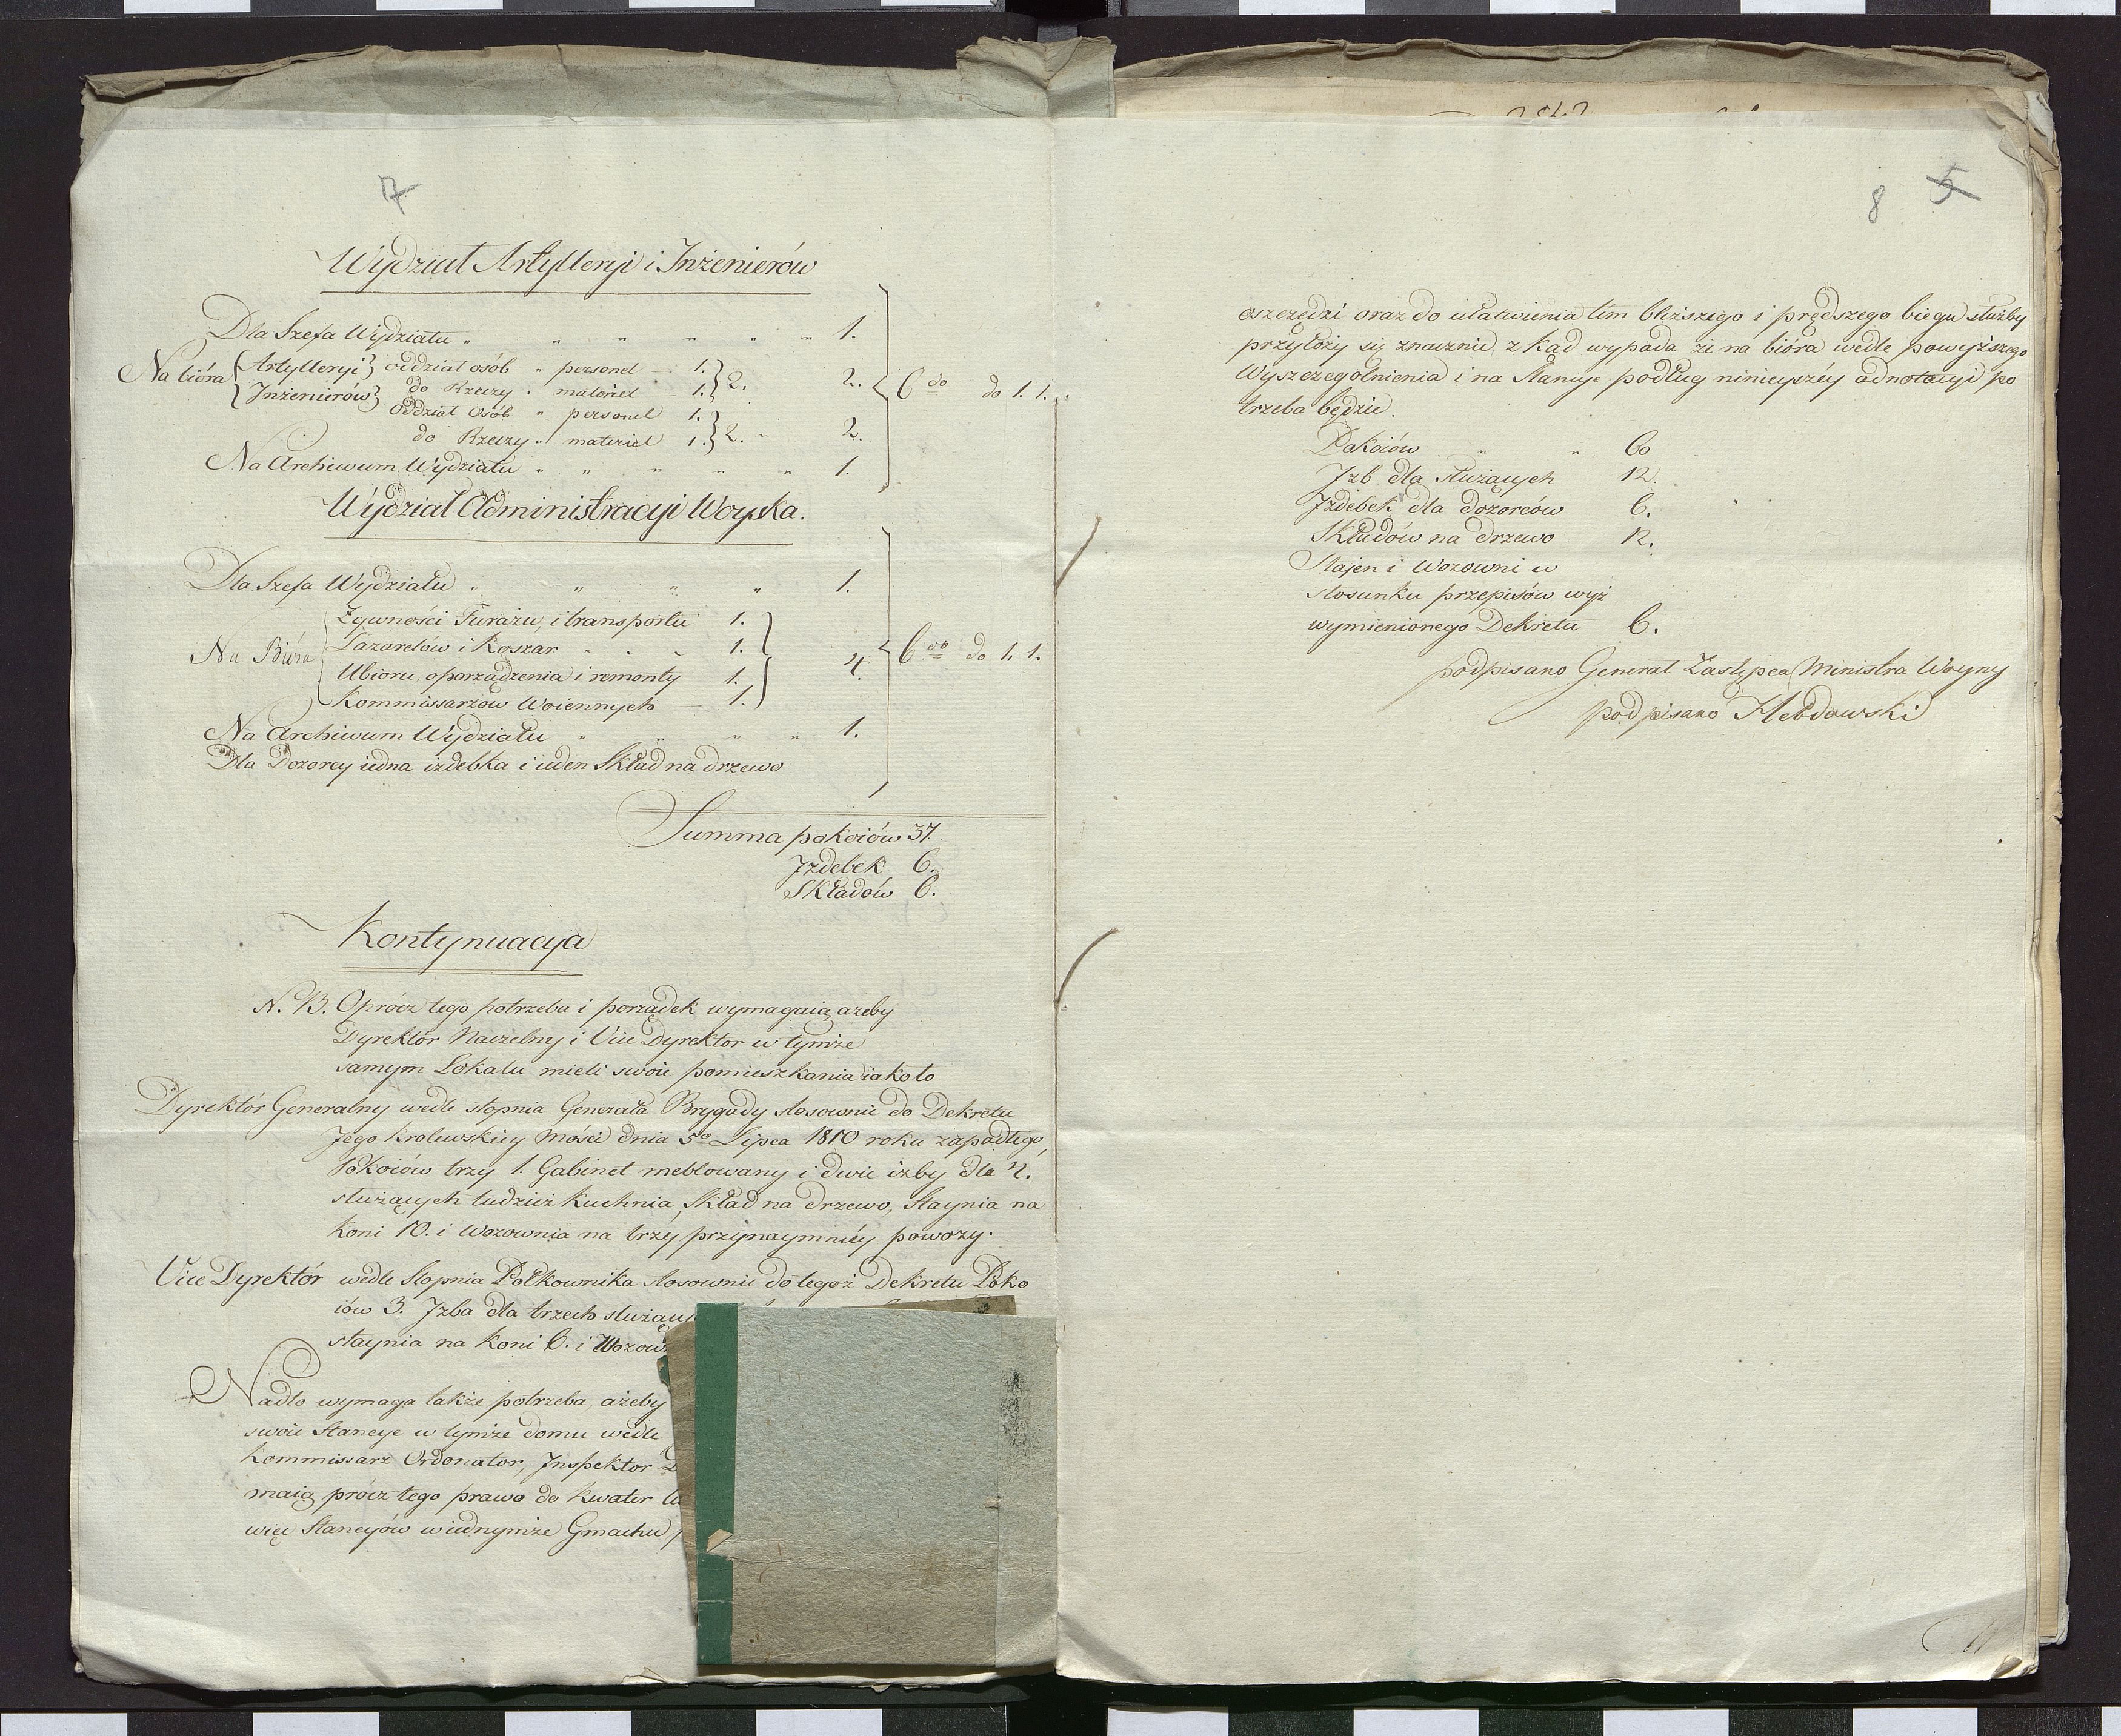 7
Wydział Artylleryi i Inżenierów
Dla Szefa Wydziału " " " " " " 1.
Na bióra Artylleryi oddział osób " personel 1. 2. 2. 6 do 1. 1.
Inżenierów do Rzeczy " materiel 1.
oddział osób " personel 1. 2. " 2.
do Rzeczy " materiel 1.
Na Archiwum Wydziału " " " " " 1.
Wydział Administracyi Woyska.
Dla Szefa Wydziału " " " " 1.
Na Bióra Żywności Furażu, i transportu 1.
Lazaretów i Koszar 1. 4. 6 do 1. 1.
Ubioru, oporządzenia i remonty 1.
Kommissarzów Woiennych 1.
Na Archiwum Wydziału " " " " 1.
Dla Dozorcy iedna izdebka i ieden Skład na drzewo
Summa pokoiów 37.
Jzdebek 6.
Składów 6.
Kontynuacya
N. B. Oprócz tego potrzeba i porządek wymagaią, ażeby
Dyrektór Naczelny i Vice Dyrektor w tymże
samym Lokalu mieli swoie pomieszkania iako to
Dyrektór Generalny wedle stopnia Generała Brygady stosownie do Dekretu
Jego Krolewskiey Mości dnia 5º Lipca 1810 roku zapadłego,
Pokoiów trzy 1. Gabinet meblowany i dwie izby dla 4.
służących tudzież Kuchnia, Skład na drzewo, Staynia na
Koni 10. i Wozownia na trzy przynaymniéy powozy.
Vice Dyrektór wedle Stopnia Połkownika stosownie do tegoż Dekretu Poko
iów 3. Jzba dla trzech służący
staynia na Koni 6. i Wozow
Nadto wymaga także potrzeba, ażeby
swoie Stancye w tymże domu wedle
Kommissarz Ordonator, Jnspektor
maią prócz tego prawo do Kwater
więc Stancyów w iednymże Gmachu,
8 5
oszczędzi oraz do ułatwienia tem bliższego i prędszego biegu służby
przyłoży się znacznie, z kąd wypada że na bióra wedle powyższego
Wyszczegolnienia i na Stancye podług ninieyszéy adnotacyi po
trzeba będzie.
Pokoiów " " 60
Jzb dla służących 12.
Jzdebek dla dozorców 6.
Składów na drzewo 12.
Stajen i Wozowni w
stosunku przepisów wyż
wymienionego Dekretu 6.
podpisano Generał Zastępca Ministra Woyny
podpisano Hebdowski